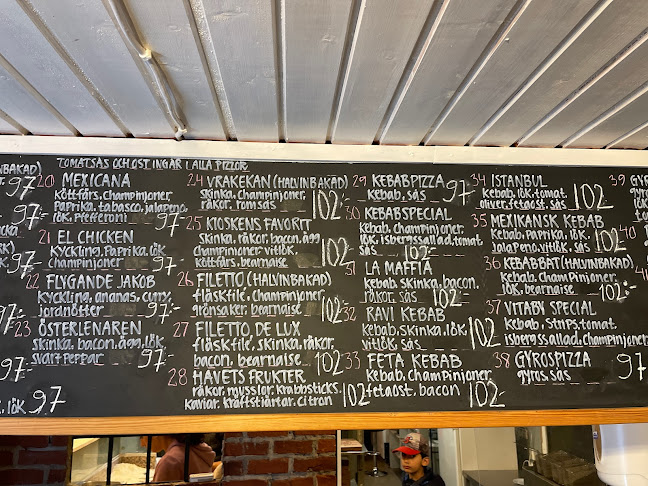 NBAKAD)
97-
97:-
97-
97-
97-
lök 97-
TOMATSÅS OCH OST INGÅR I ALLA PIZZOR
20 MEXICANA
köttfärs, champinjoner,
Paprika, tabasco, jalapeno,
lök, Pfefferoni 97:-
21 EL CHICKEN
kyckling, Paprika, lök
champinjoner 97:-
22 FLYGANDE JAKOB
kyckling, ananas, curry,
jordnötter 97:-
23 ÖSTERLENAREN
skinka, bacon, ägg, lök,
svart peppar 97:-
24 VRAKEKAN (HALVINBAKAD)
skinka, champinjoner,
räkor, tomsås 102:-
25 KIOSKENS FAVORIT
skinka, räkor, bacon, ägg
champinjoner, vitlök,
köttfärs, bearnaise 102:-
26 FILETTO (HALVINBAKAD)
fläskfile, champinjoner,
grönsaker, bearnaise 102
27 FILETTO DE LUX
fläskfile, skinka, räkor,
bacon, bearnaise 102
28 HAVETS FRUKTER
räkor, musslor, krabbsticks,
kaviar, kräftstjärtar, citron 102
29 KEBABPIZZA
kebab, sås 97-
30 KEBABSPECIAL
kebab, champinjoner,
lök, isbergssallad, tomat
sås 102
31 LA MAFFIA
kebab, skinka, bacon,
räkor, sås 102
32 RAVI KEBAB
kebab, skinka, lök,
vitlök, sås 102
33 FETA KEBAB
kebab, champinjoner,
fetaost, bacon 102
34 ISTANBUL
kebab, lök, tomat
oliver, fetaost, sås 102
35 MEXIKANSK KEBAB
kebab, Paprika, lök,
jalapeno, vitlök, sås 102
36 KEBABBERT (HALVINBAKAD)
kebab, champinjoner,
lök, bearnaise 102:-
37 VITABY SPECIAL
kebab, strips, tomat,
isbergssallad, champinjoner
102
38 GYROSPIZZA
gyros, sås 97
39 GYRO
40
41